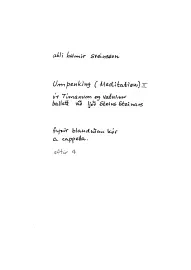 atli heimir sveinsson
Umþenking (Meditation) II
úr Tímanum og vatninu
ballett við ljóð Steins Steinars
fyrir blandaðan kór
a cappella.